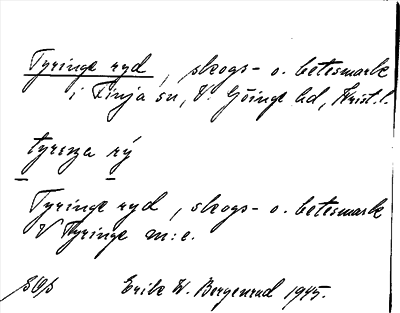 Tyringe ryd, skogs- o. betesmark
i Finja sn, V. Göinge hd, Krist. l.
tyrsza rý
Tyringe ryd, skogs- o. betesmark
V Tyringe m:e.
Erik W. Bergenrud 1945.